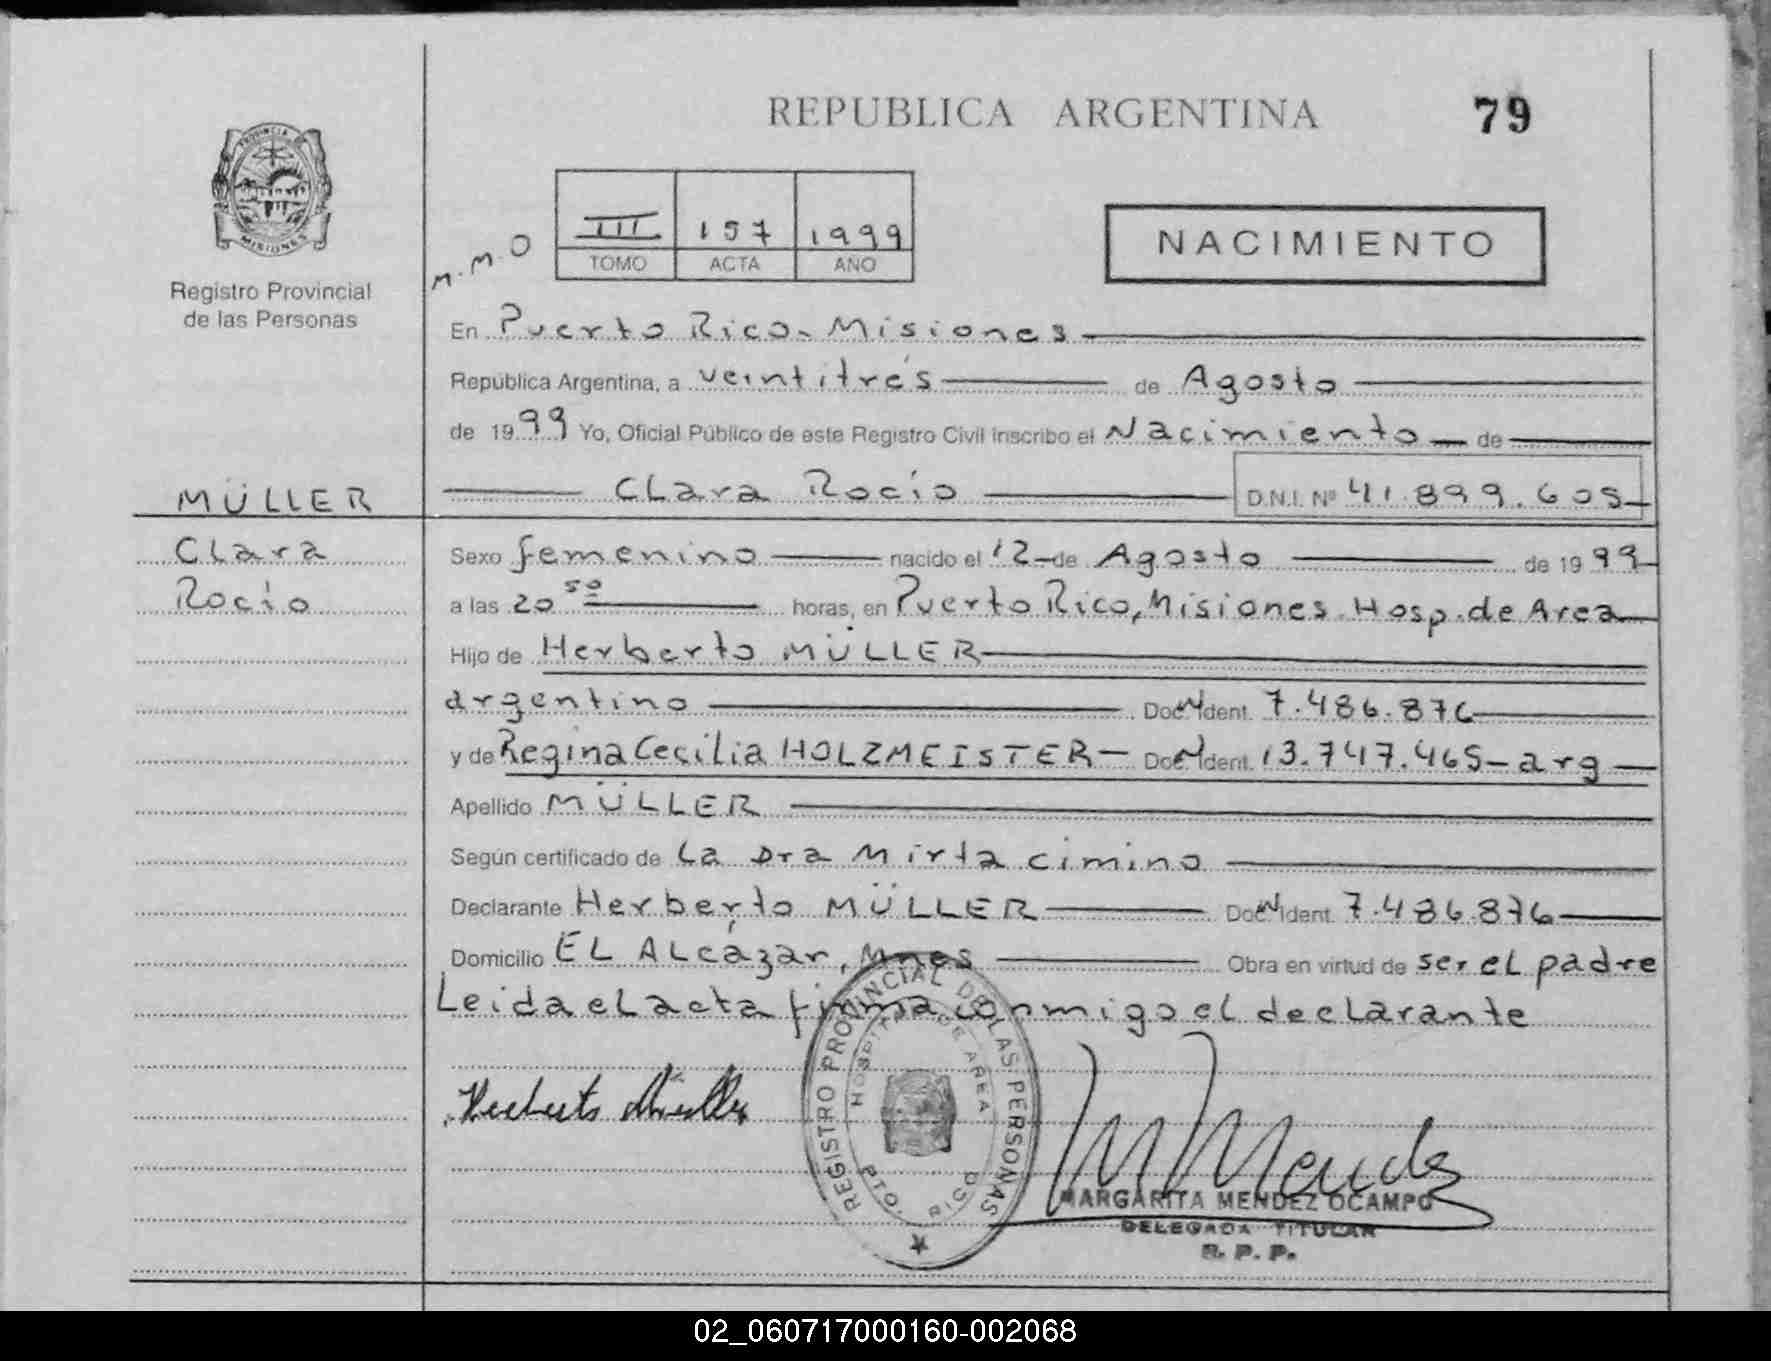 REPUBLICA ARGENTINA 79
PROVINCIA DE MISIONES
Registro Provincial
de las Personas
M.M.O
III 157 1999
TOMO ACTA AÑO
NACIMIENTO
En Puerto Rico - Misiones
República Argentina, a veintitrés de Agosto
de 1999 Yo, Oficial Público de este Registro Civil inscribo el Nacimiento de
MÜLLER
Clara Rocío D.N.I. Nº 41.899.605
Clara
Rocío
Sexo femenino nacido el 12 de Agosto de 1999
a las 20 50 horas, en Puerto Rico, Misiones Hosp. de Area
Hijo de Herberto MÜLLER
argentino Doc N Ident. 7.486.876
y de Regina Cecilia HOLZMEISTER Doc N Ident. 13.747.465 - arg
Apellido MÜLLER
Según certificado de La Dra Mirta Cimino
Declarante Herberto MÜLLER Doc N Ident. 7.486.876
Domicilio EL ALcázar, Mnes Obra en virtud de ser el padre
Leida el acta firma conmigo el declarante
Herberto Müller
REGISTRO PROVINCIAL DE LAS PERSONAS
HOSPITAL DE AREA
PTO. RICO
M Mendez
MARGARITA MENDEZ OCAMPO
DELEGADA TITULAR
R. P. P.
02_060717000160-002068